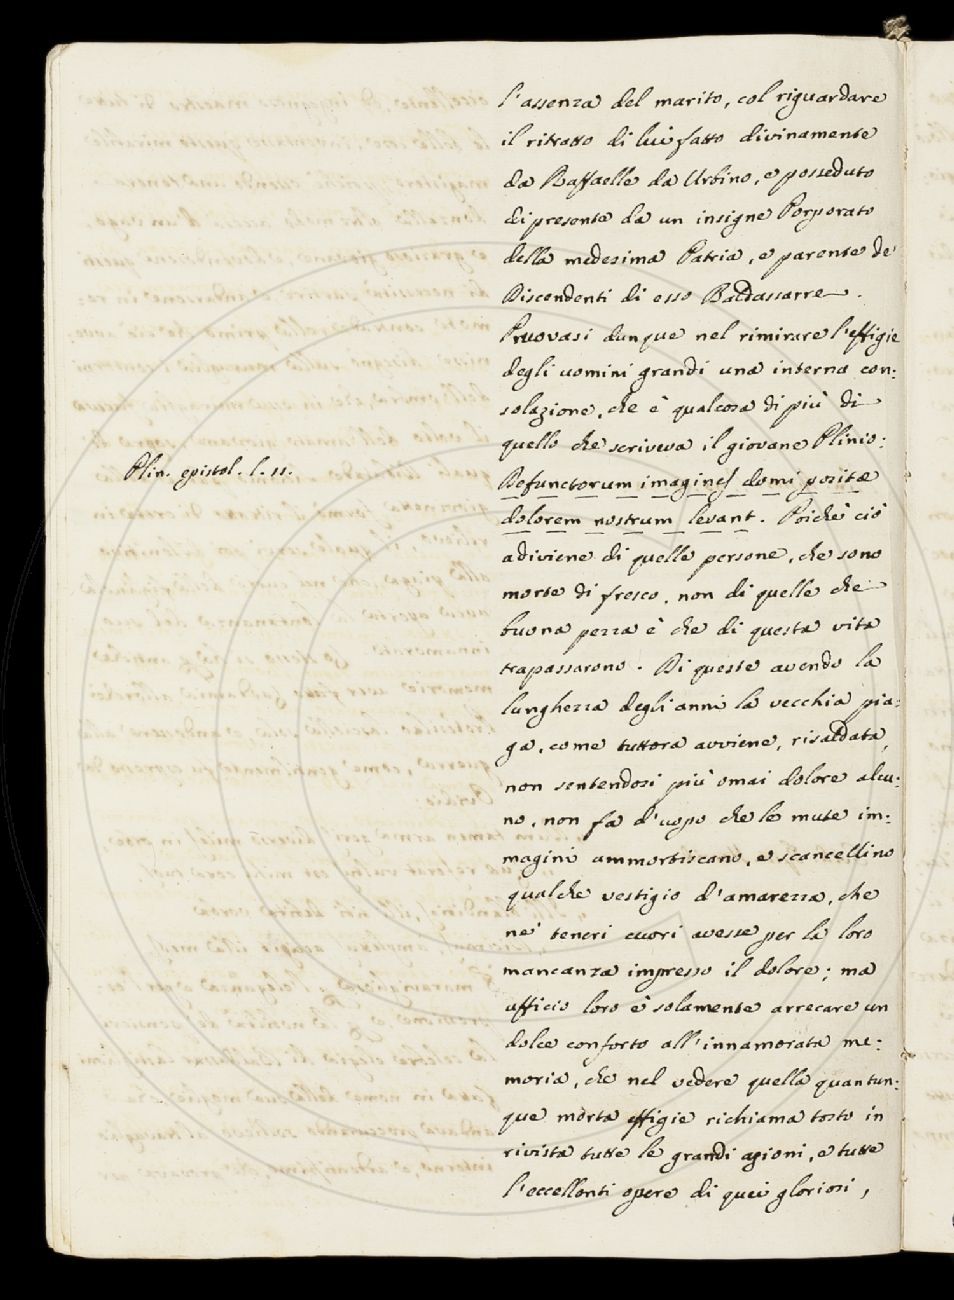 l'assenza del marito, col riguardare
il ritratto di lui fatto divinamente
da Raffaelle da Urbino, e posseduto
di presente da un insigne Porporato
della medesima Patria, e parente de'
Discendenti di esso Baldassarre.
Pruovasi dunque nel rimirare l'effigie
degli uomini grandi una interna con:
solazione, che è qualcosa di più di
quello che scriveva il giovane Plinio:
Plin. epistol. l. 11.
Defunctorum imagines domi positæ
dolorem nostrum levant. Poichè ciò
adiviene di quelle persone, che sono
morte di fresco, non di quelle che
buona pezza è che di questa vita
trapassarono. Di queste avendo la
lunghezza degli anni la vecchia pia:
ga, come tuttora avviene, risaldata,
non sentendosi più omai dolore alcu:
no, non fa d'uopo che le mute im:
magini ammortiscano, e scancellino
qualche vestigio d'amarezza, che
ne' teneri cuori avesse per la loro
mancanza impresso il dolore; ma
ufficio loro è solamente arrecare un
dolce conforto all'innamorata me:
moria, che nel vedere quella quantun:
que morta effigie richiama tosto in
rivista tutte le grandi azioni, e tutte
l'eccellenti opere di quei gloriosi,